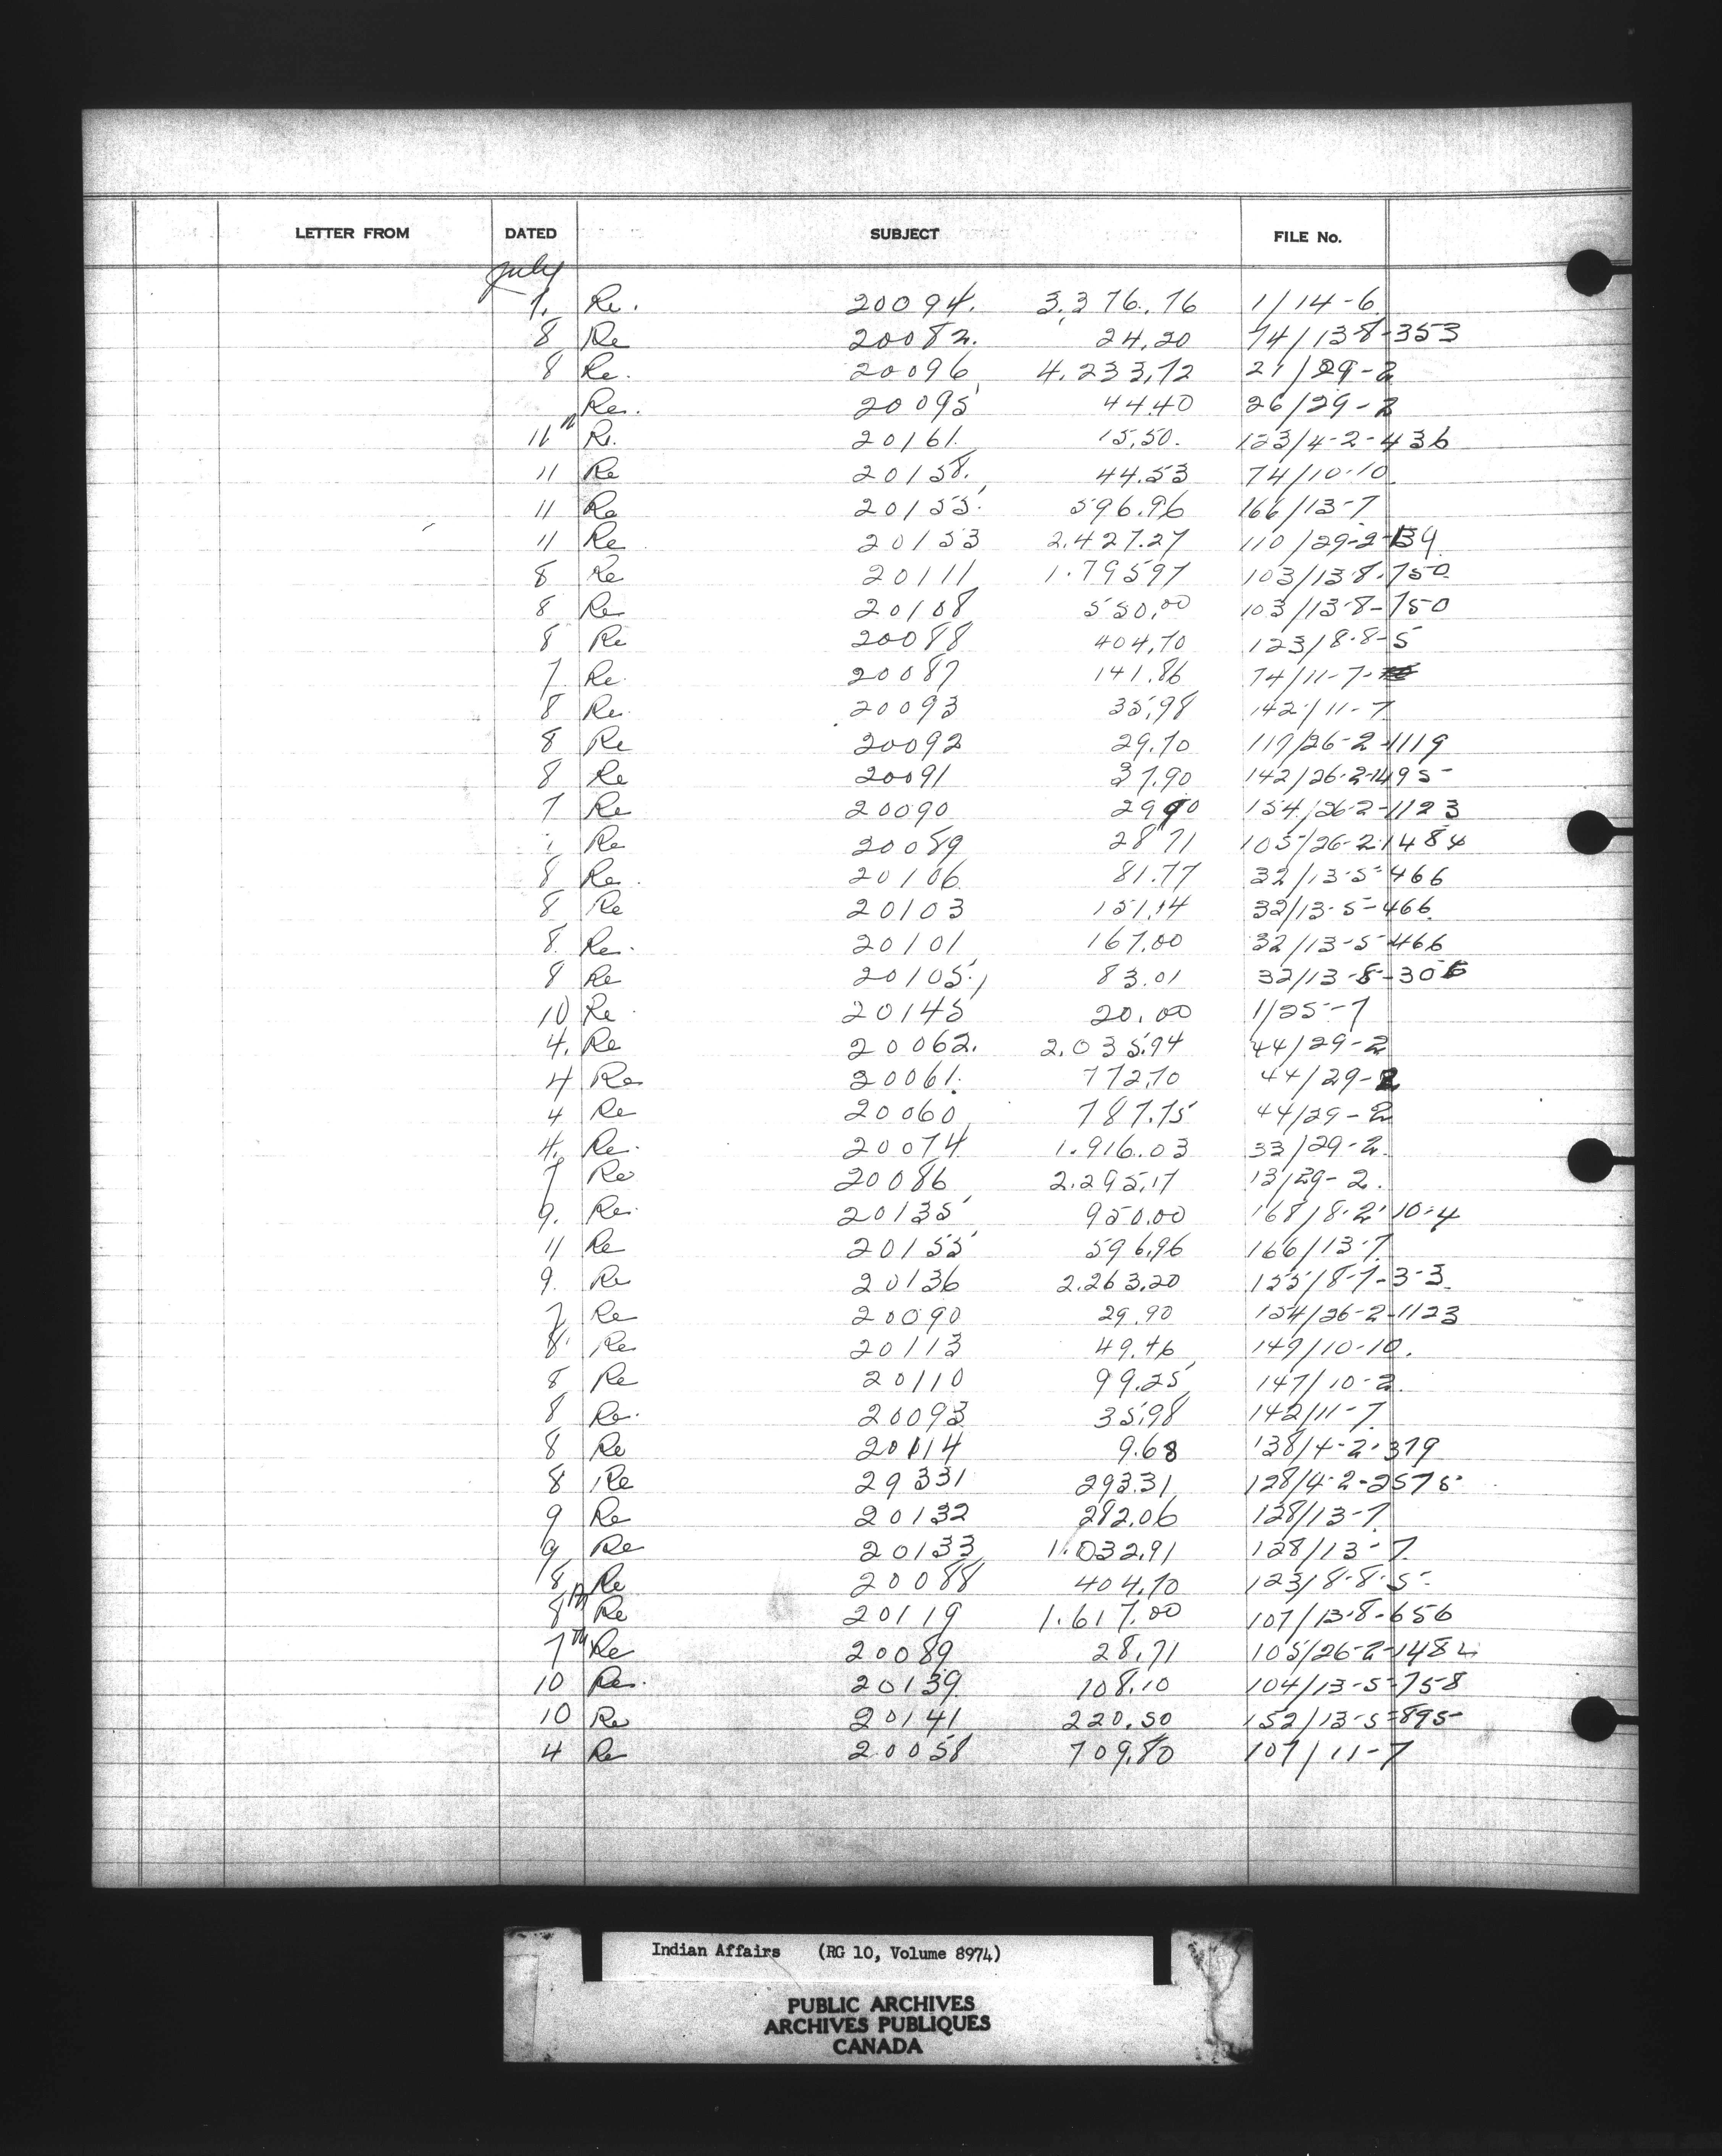 LETTER FROM DATED SUBJECT FILE No.
July
7. Re. 20094. 3,376.76 1/14-6
8 Re 20082. 24.20 74/13-8-353
8 Re. 20096 4.233,72 21/29-2
Re. 20095 44.40 26/29-2
11th Re. 20161. 15.50. 123/4-2-436
11 Re 20158. 44.53 74/10-10.
11 Re 20155. 596.96 166/13-7
11 Re 20153 2.427.27 110/29-2-134
8 Re 20111 1.79597 103/13-8-750
8 Re 20108 550.00 103/13-8-750
8 Re 20088 404.70 123/8-8-5
7 Re. 20087 141.86 74/11-7-
8 Re. 20093 35.98 142/11-7
8 Re 20092 29.70 119/26-2-1119
8 Re 20091 37.90 142/26-2-1495
7 Re 20090 2990 154/26-2-1123
Re 20089 28 71 105/26-2-1484
8 Re. 20106 81.77 32/13-5-466
8 Re 20103 151.14 32/13-5-466
8. Re. 20101 167.00 32/13-5-466
8 Re 20105. 83.01 32/13-8-306
10 Re 20145 20.00 1/25-7
4. Re 20062. 2.035.94 44/29-2
4 Re 20061. 772.70 44/29-2
4 Re 20060 787.75 44/29-2
4. Re. 20074 1.916.03 33/29-2.
7 Re 20086 2.295.17 13/29-2.
9. Re. 20135 950.00 168/8-2-10-4
11 Re 20155 596.96 166/13-7
9. Re 20136 2.263.20 155/8-7-3-3.
7 Re 20090 29.90 154/26-2-1123
8. Re 20113 49.46 149/10-10.
8 Re 20110 99.25 147/10-2.
8 Re. 20093 35.98 142/11-7
8 Re 20114 9.68 138/4-2-379
8 Re 29331 293.31 128/4-2-2575
9 Re 20132 282.06 128/13-7
9 Re 20133 1.032.91 128/13-7.
8 Re 20088 404.70 123/8-8-5-
8th Re 20119 1.617.00 107/13-8-656
7th Re 20089 28.71 105/26-2-1484
10 Re. 20139 108.10 104/13-5-758
10 Re 20141 220.50 152/13-5-895
4 Re 20058 709.80 107/11-7
Indian Affairs (RG 10, Volume 8974)
PUBLIC ARCHIVES
ARCHIVES PUBLIQUES
CANADA